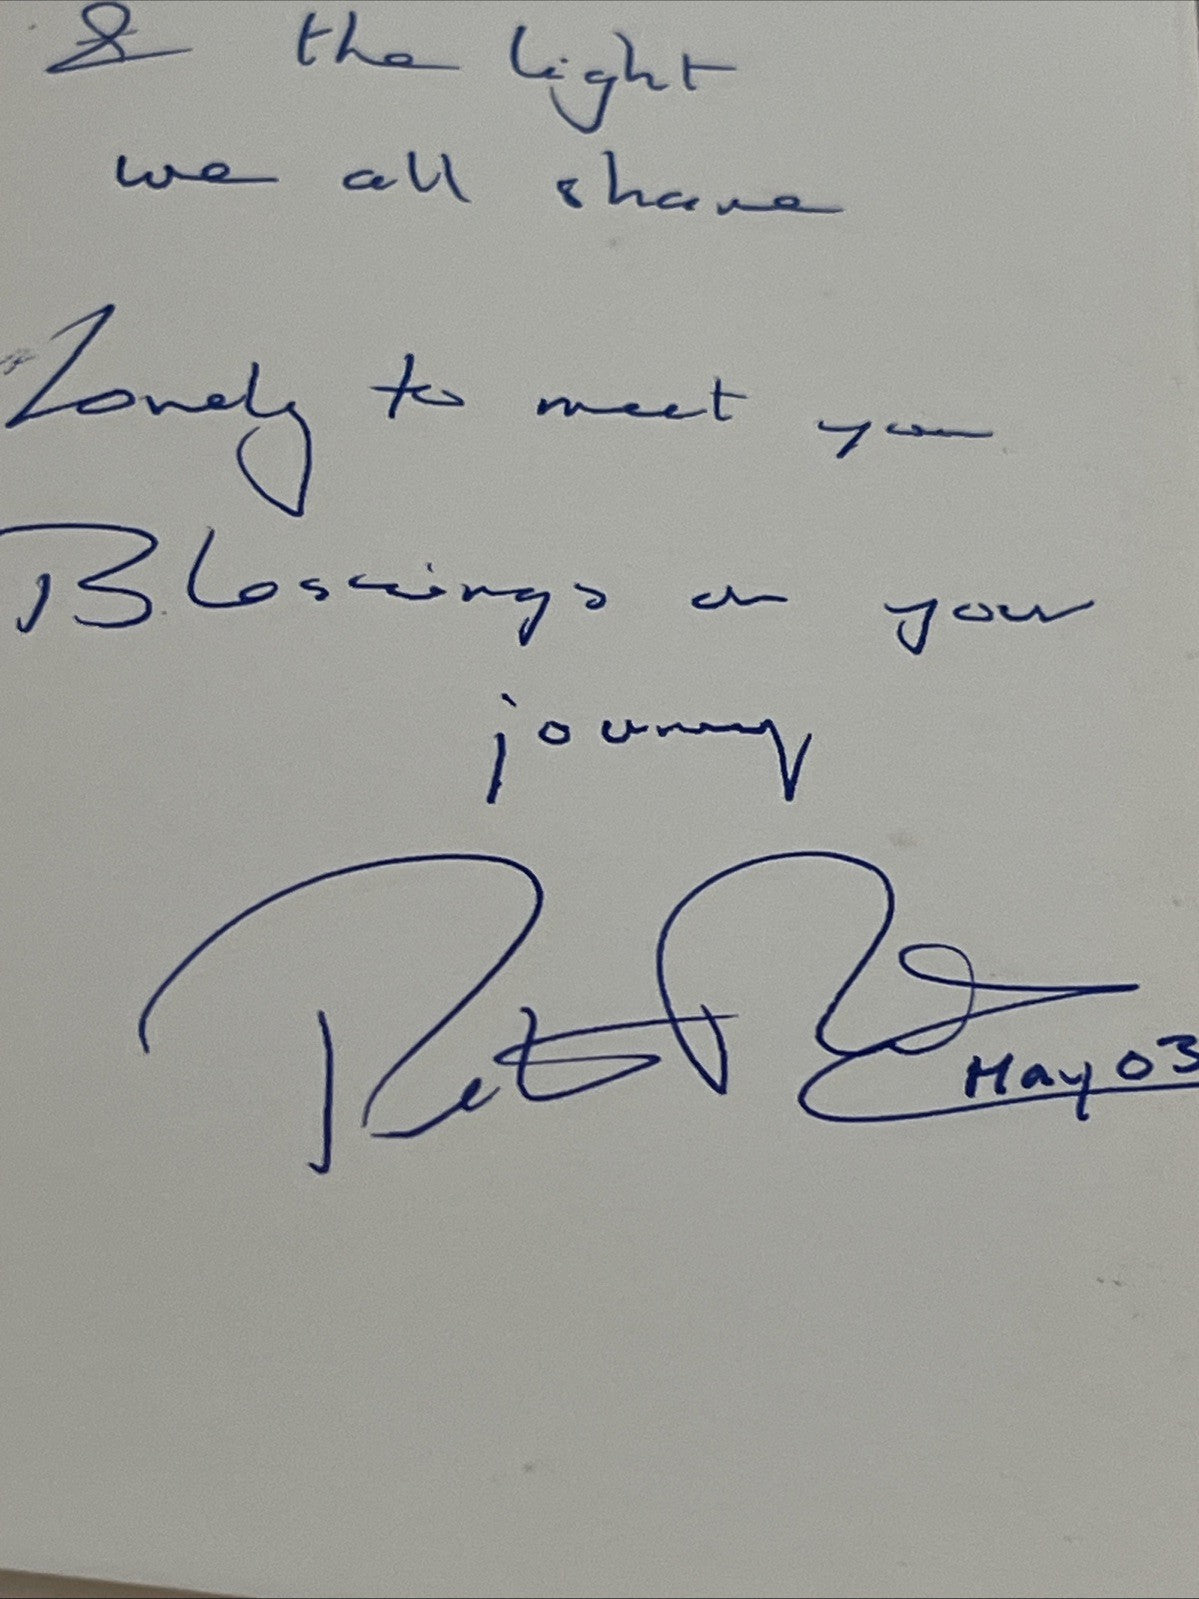 & the light
we all share
Lovely to meet you
Blessings on your
journey
Peter
May 03